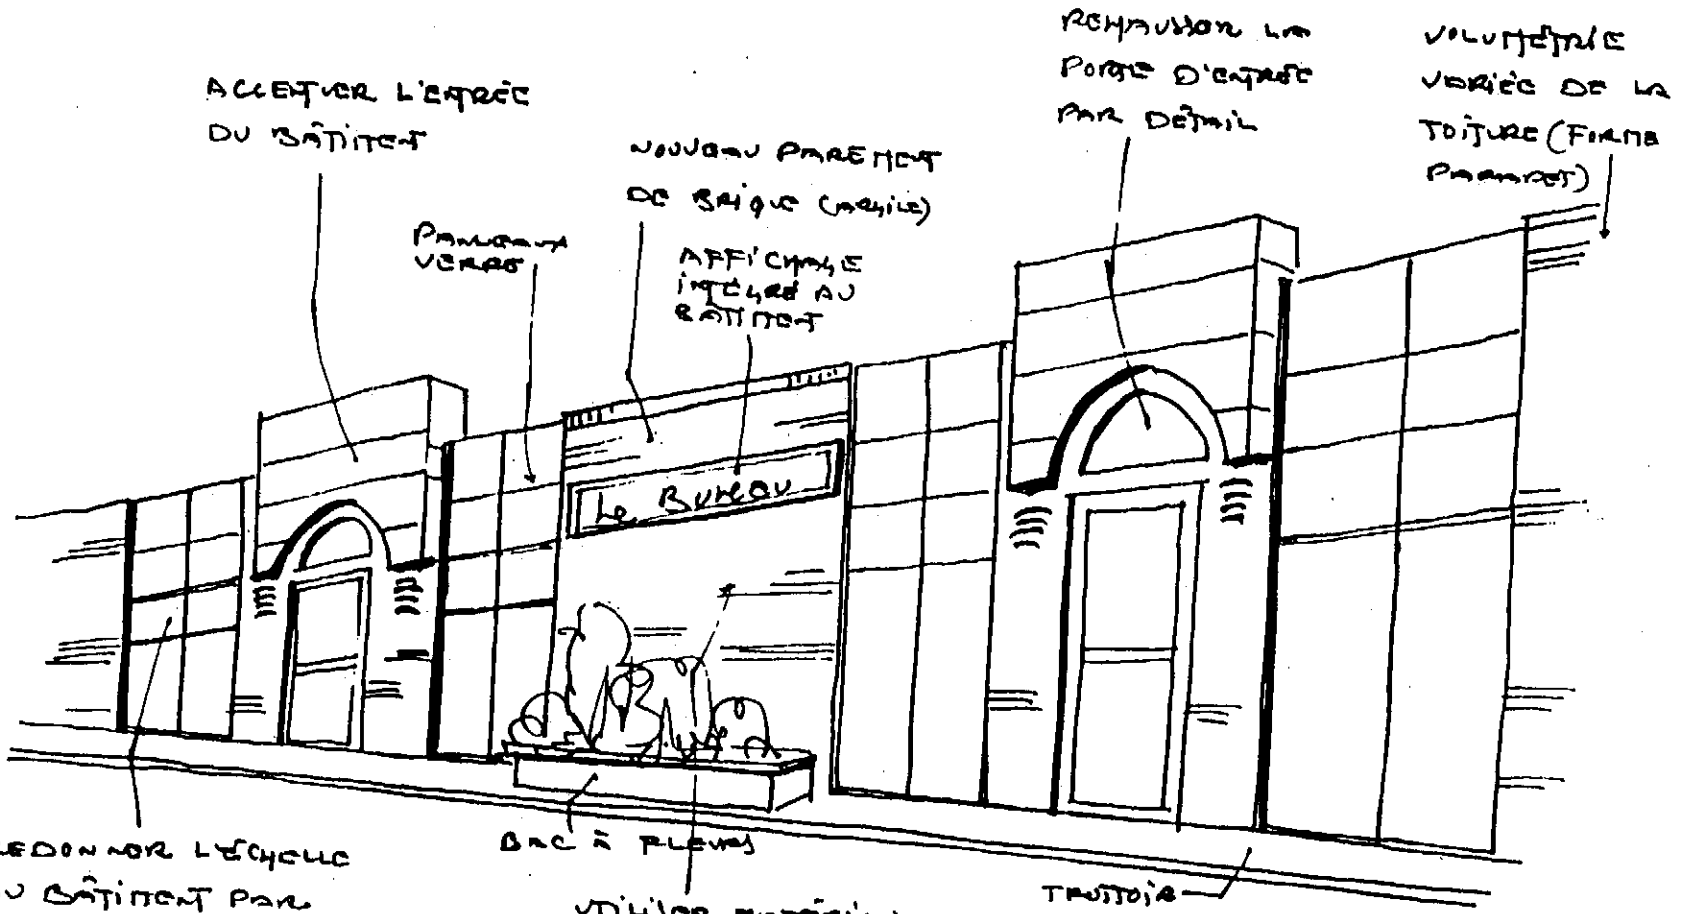 ACCENTUER L'ENTRÉE
DU BÂTIMENT
NOUVEAU PAREMENT
DE BRIQUE (ARGILE)
PANNEAUX
VERRE
AFFICHAGE
INTÉGRÉ AU
BÂTIMENT
REHAUSSER LA
PORTE D'ENTRÉE
PAR DÉTAIL
VOLUMÉTRIE
VARIÉE DE LA
TOITURE (FORME
PARAPET)
Le Bureau
REDONNER L'ÉCHELLE
DU BÂTIMENT PAR
BAC À FLEURS
UTILISER
TROTTOIR